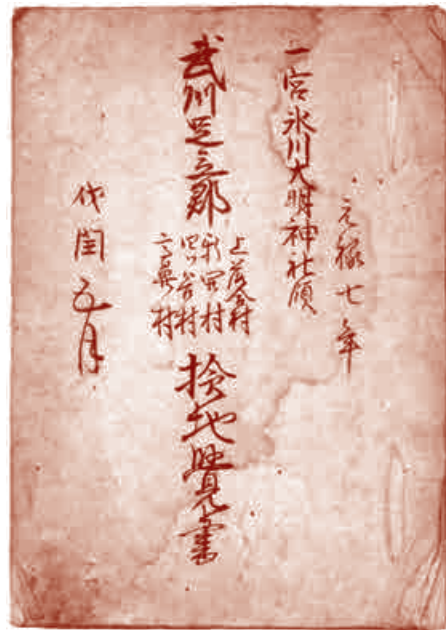 元禄七年
一宮氷川大明神社領
武州足立郡
上落合村
新開村
四ツ谷村
高鼻村
撿地覺書
戌閏五月